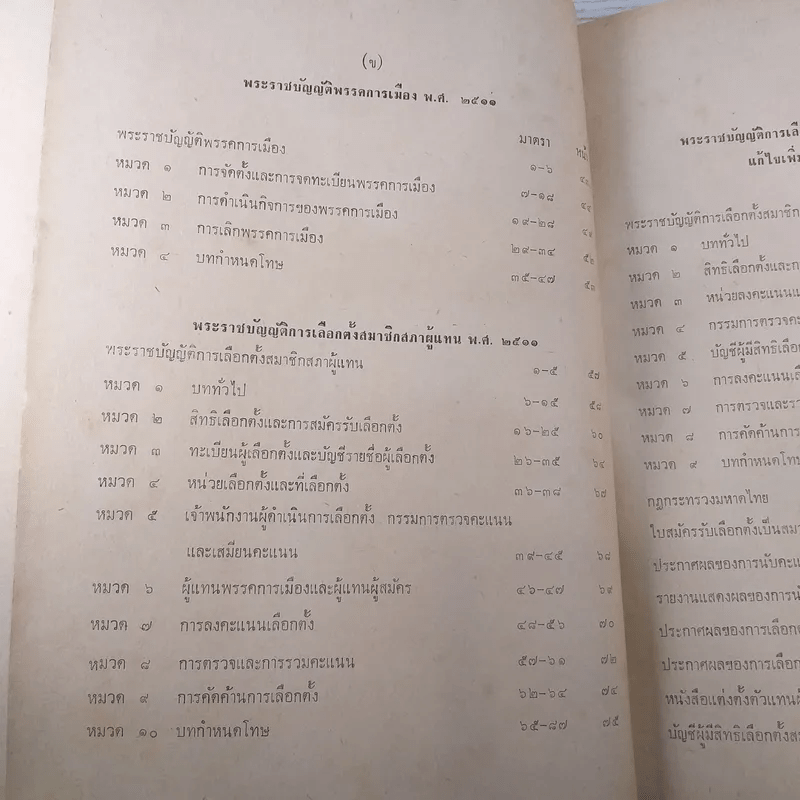 (ข)
พระราชบัญญัติพรรคการเมือง พ.ศ. ๒๕๑๑
มาตรา หน้า
พระราชบัญญัติพรรคการเมือง ๑-๖
หมวด ๑ การจัดตั้งและการจดทะเบียนพรรคการเมือง ๗-๑๘
หมวด ๒ การดำเนินกิจการของพรรคการเมือง ๑๙-๒๘
หมวด ๓ การเลิกพรรคการเมือง ๒๙-๓๔ ๕๒
หมวด ๔ บทกำหนดโทษ ๓๕-๔๗
พระราชบัญญัติการเลือกตั้งสมาชิกสภาผู้แทน พ.ศ. ๒๕๑๑
พระราชบัญญัติการเลือกตั้งสมาชิกสภาผู้แทน ๑-๕ ๕๗
หมวด ๑ บททั่วไป ๖-๑๕ ๕๘
หมวด ๒ สิทธิเลือกตั้งและการสมัครรับเลือกตั้ง ๑๖-๒๕ ๖๐
หมวด ๓ ทะเบียนผู้เลือกตั้งและบัญชีรายชื่อผู้เลือกตั้ง ๒๖-๓๕ ๖๔
หมวด ๔ หน่วยเลือกตั้งและที่เลือกตั้ง ๓๖-๓๘ ๖๗
หมวด ๕ เจ้าพนักงานผู้ดำเนินการเลือกตั้ง กรรมการตรวจคะแนน
และเสมียนคะแนน ๓๙-๔๕ ๖๘
หมวด ๖ ผู้แทนพรรคการเมืองและผู้แทนผู้สมัคร ๔๖-๔๗ ๖๙
หมวด ๗ การลงคะแนนเลือกตั้ง ๔๘-๕๖ ๗๐
หมวด ๘ การตรวจและการรวมคะแนน ๕๗-๖๑ ๗๒
หมวด ๙ การคัดค้านการเลือกตั้ง ๖๒-๖๔ ๗๔
หมวด ๑๐ บทกำหนดโทษ ๖๕-๘๗ ๗๕
พระราชบัญญัติการเลือ
แก้ไขเพิ่ม
พระราชบัญญัติการเลือกตั้งสมาชิก
หมวด ๑ บททั่วไป
หมวด ๒ สิทธิเลือกตั้งและกา
หมวด ๓ หน่วยลงคะแนนแ
หมวด ๔ กรรมการตรวจคะ
หมวด ๕ บัญชีผู้มีสิทธิเลือก
หมวด ๖ การลงคะแนนเลื
หมวด ๗ การตรวจและรว
หมวด ๘ การคัดค้านการ
หมวด ๙ บทกำหนดโท
กฎกระทรวงมหาดไทย
ใบสมัครรับเลือกตั้งเป็นสมา
ประกาศผลของการนับคะ
รายงานแสดงผลของการนั
ประกาศผลของการเลือกต
ประกาศผลของการเลือก
หนังสือแต่งตั้งตัวแทนผู้
บัญชีผู้มีสิทธิเลือกตั้งสม